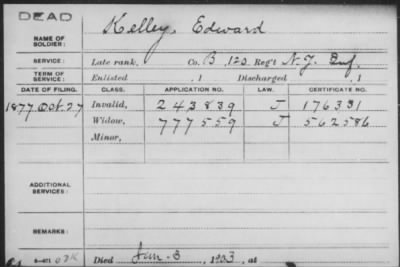 DEAD
NAME OF SOLDIER: Kelley, Edward
SERVICE: Late rank, Co. B, 120 Reg't N.Y. Inf.
TERM OF SERVICE: Enlisted , 1 Discharged , 1
DATE OF FILING. CLASS. APPLICATION NO. LAW. CERTIFICATE NO.
1877 Oct. 27 Invalid, 243839 J 176331
Widow, 777559 J 562586
Minor,
ADDITIONAL SERVICES:
REMARKS:
Died Jan. 3, 1903, at